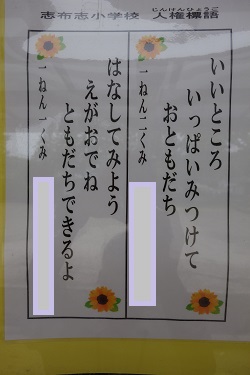 志布志小学校　人権標語
じんけんひょうご
いいところ
いっぱいみつけて
おともだち
一ねん二くみ
はなしてみよう
えがおでね
ともだちできるよ
一ねん一くみ